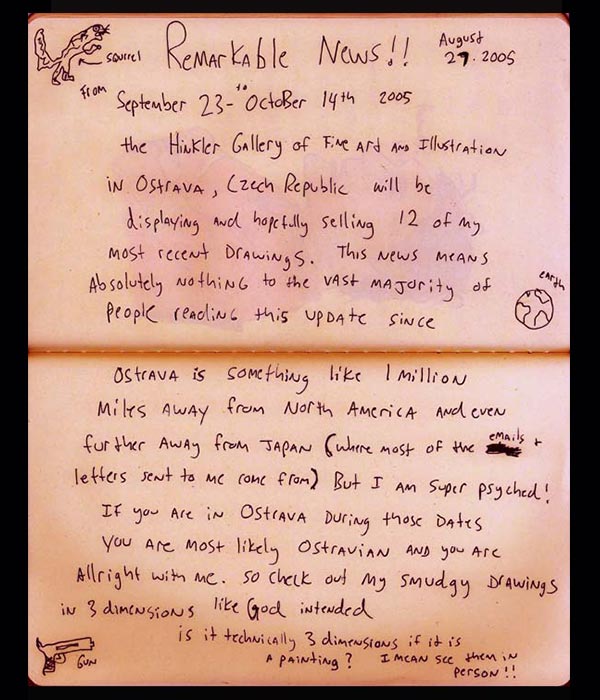 squirrel
Remarkable News!!
August
29. 2005
From
September 23- to October 14th 2005
the Hinkler Gallery of Fine Art and Illustration
in Ostrava, Czech Republic will be
displaying and hopefully selling 12 of my
most recent Drawings. This news means
Absolutely nothing to the vast majority of
People reading this update since
earth
Ostrava is something like 1 million
Miles away from North America and even
further away from Japan (where most of the emails +
letters sent to me come from) But I am super psyched!
If you are in Ostrava during those dates
you are most likely Ostravian and you are
Allright with me. so check out my smudgy drawings
in 3 dimensions like God intended
is it technically 3 dimensions if it is
a painting? I mean see them in
person!!
Gun